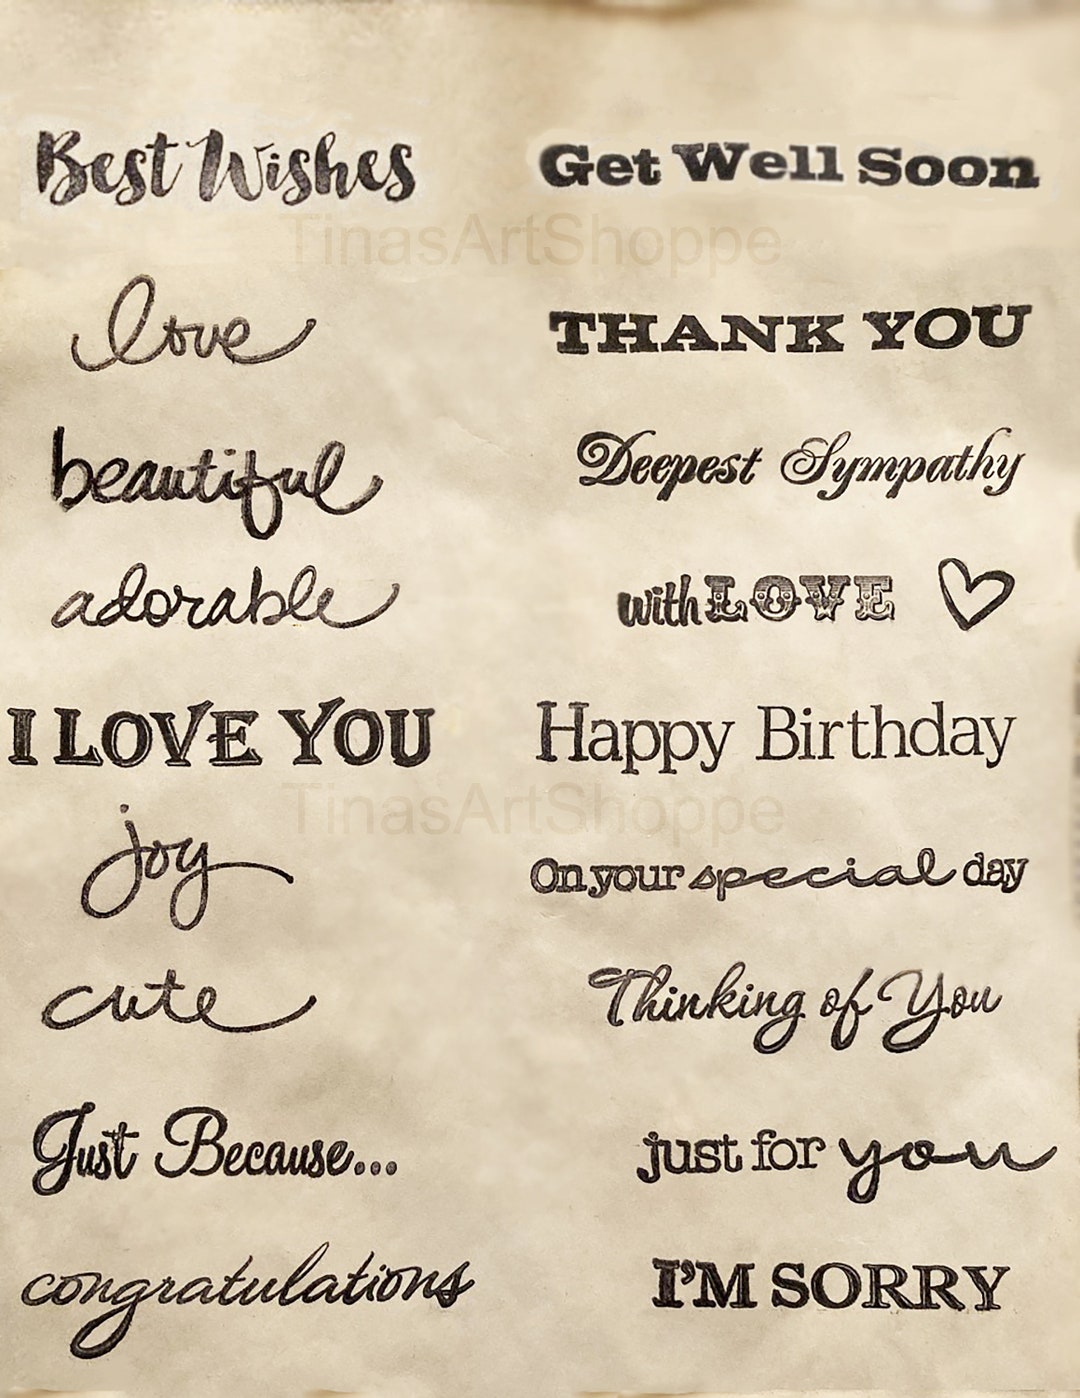 Best Wishes
Get Well Soon
TinasArtShoppe
love
THANK YOU
beautiful
Deepest Sympathy
adorable
with LOVE
I LOVE YOU
Happy Birthday
TinasArtShoppe
joy
On your special day
cute
Thinking of You
Just Because...
just for you
congratulations
I'M SORRY